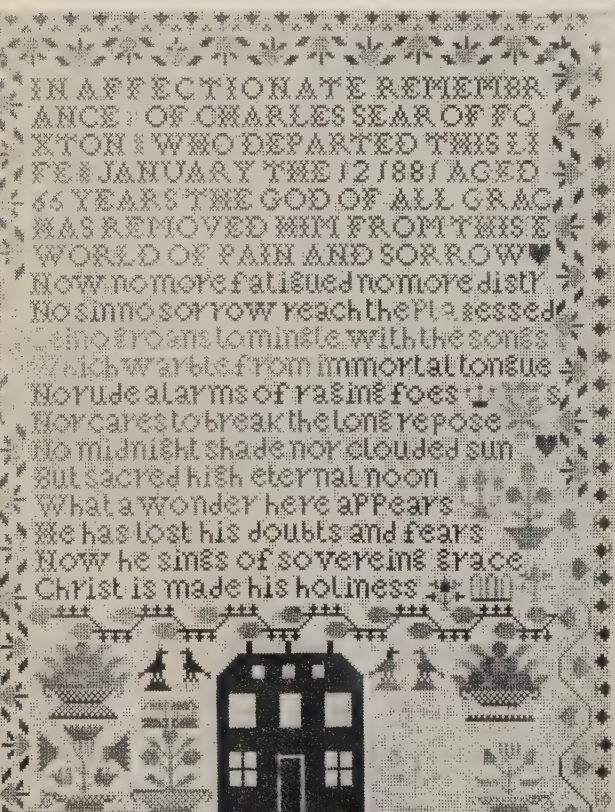 IN AFFECTIONATE REMEMBR
ANCE OF CHARLES SEAR OF FO
XTON WHO DEPARTED THIS LI
FE JANUARY THE 12 1881 AGED
66 YEARS THE GOD OF ALL GRAC
HAS REMOVED HIM FROM THIS E
WORLD OF PAIN AND SORROW
Now no more fatigued no more distr
No sin no sorrow reach the Pla essed
no groans to mingle with the songs
Which warble from immortal tongue
No rude alarms of raging foes s
Nor cares to break the long repose
No midnight shade nor clouded sun
But sacred high eternal noon
What a wonder here aPPears
He has lost his doubts and fears
Now he sings of sovereing grace
Christ is made his holiness